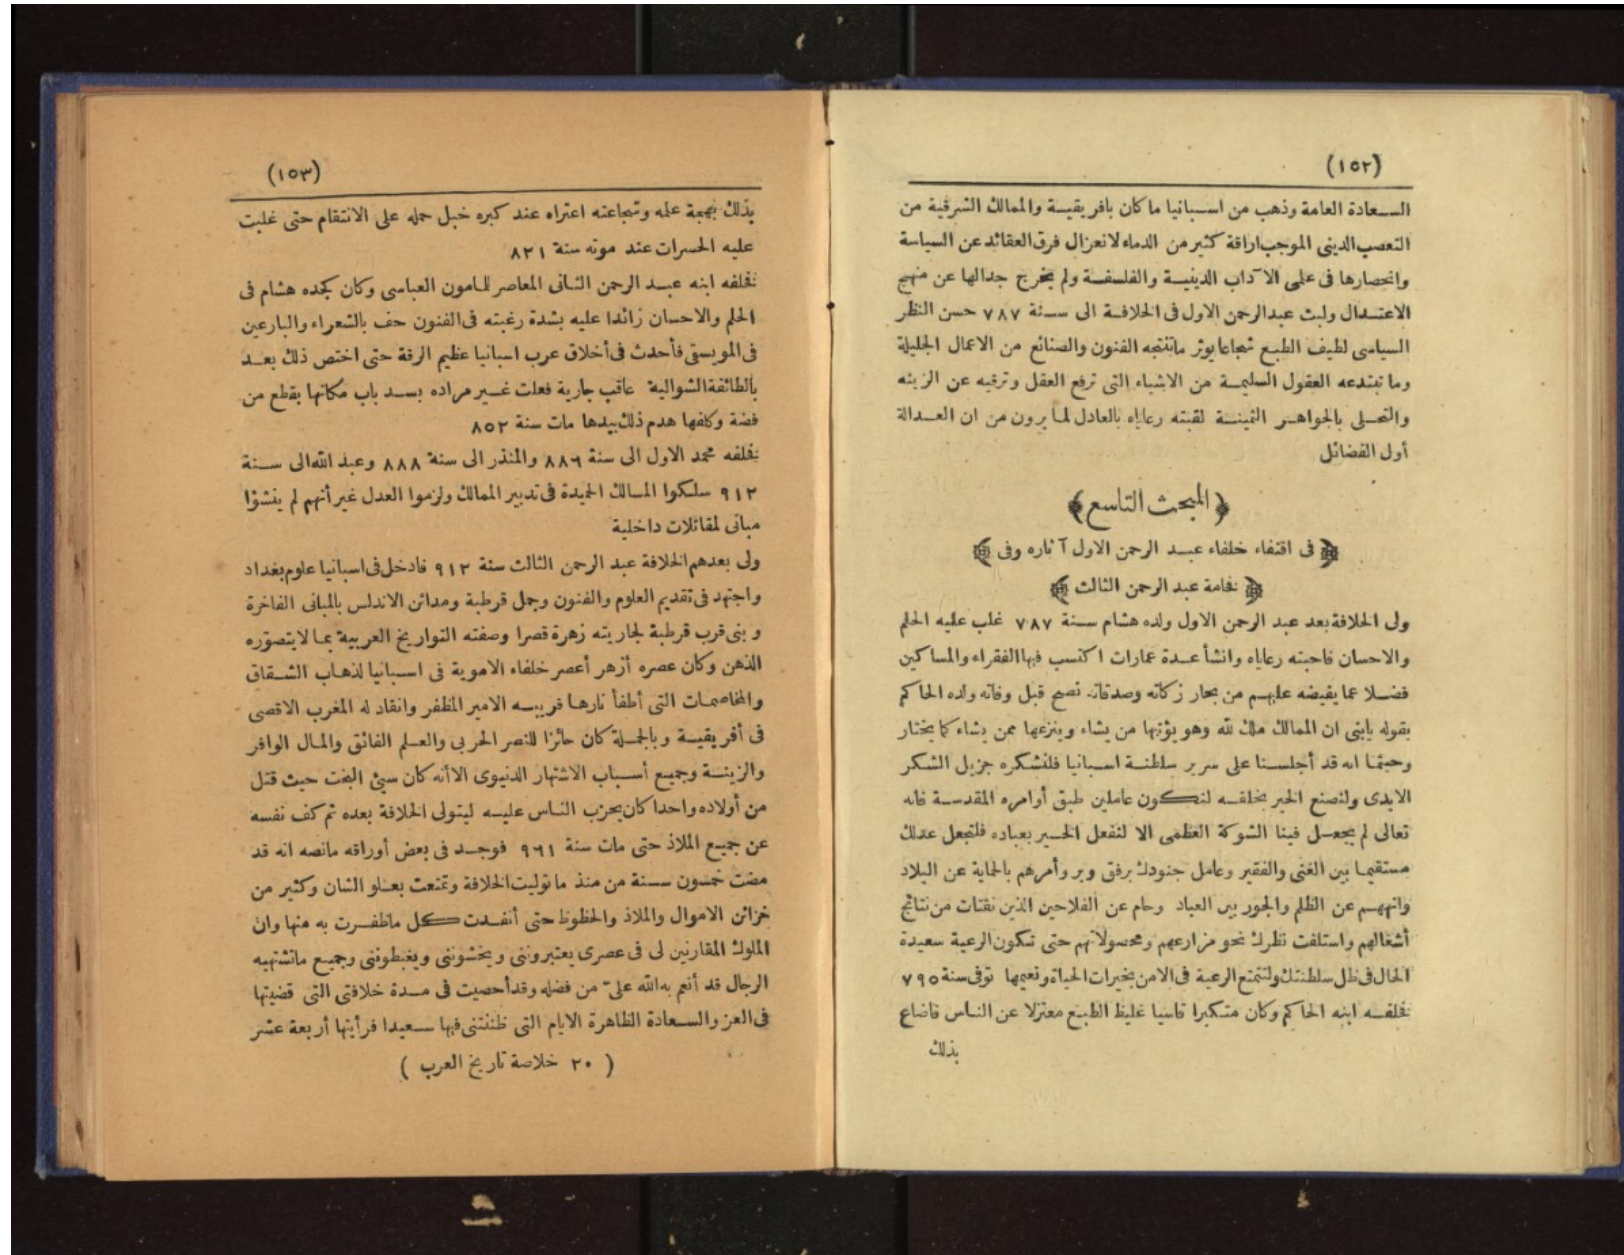 (١٥٢)
السعادة العامة وذهب من اسبانيا ما كان بافريقية والممالك الشرقية من
التعصب الدينى الموجب اراقة كثير من الدماء لانعزال فرق العقائد عن السياسة
وانحصارها فى علمى الآداب الدينية والفلسفة ولم يخرج جدالها عن منهج
الاعتدال ولبث عبد الرحمن الاول فى الخلافة الى سنة ٧٨٧ حسن النظر
السياسى لطيف الطبع شجاعا يوثر ماتنتجه الفنون والصنائع من الاعمال الجليلة
وما تبتدعه العقول السليمة من الاشياء التى ترفع العقل وترقيه عن الزينه
والتحلى بالجواهر الثمينة لقبته رعاياه بالعادل لما يرون من ان العدالة
أول الفضائل
﴿المبحث التاسع﴾
﴿فى اقتفاء خلفاء عبد الرحمن الاول آثاره وفى﴾
﴿فخامة عبد الرحمن الثالث﴾
ولى الخلافة بعد عبد الرحمن الاول ولده هشام سنة ٧٨٧ غلب عليه الحلم
والاحسان فاحبته رعاياه وانشأ عدة عمارات اكتسب فيها الفقراء والمساكين
فضلا عما يفيضه عليهم من بحار زكاته وصدقاته نصح قبل وفاته ولده الحاكم
بقوله يابنى ان الممالك ملك لله وهو يؤتيها من يشاء وينزعها ممن يشاء كما يختار
وحيثما انه قد أجلسنا على سرير سلطنة اسبانيا فلنشكره جزيل الشكر
الابدى ولنصنع الخير بخلقه لنكون عاملين طبق أوامره المقدسة فانه
تعالى لم يجعل فينا الشوكة العظمى الا لنفعل الخير بعباده فلتجعل عدلك
مستقيما بين الغنى والفقير وعامل جنودك برفق وبر وأمرهم بالحماية عن البلاد
وانههم عن الظلم والجور بين العباد وحام عن الفلاحين الذين نقتات من نتائج
أشغالهم واستلفت نظرك نحو مزارعهم ومحصولاتهم حتى تكون الرعية سعيدة
الحال فى ظل سلطنتك ولتتمتع الرعية فى الامن بخيرات الحياة ونعيمها توفى سنة ٧٩٥
فخلفه ابنه الحاكم وكان متكبرا قاسيا غليظ الطبع معتزلا عن الناس فاضاع
بذلك
(١٥٣)
بذلك بهجة علمه وشجاعته اعتراه عند كبره خبل حمله على الانتقام حتى غلبت
عليه الحسرات عند موته سنة ٨٢١
فخلفه ابنه عبد الرحمن الثانى المعاصر للمامون العباسى وكان كجده هشام فى
الحلم والاحسان زائدا عليه بشدة رغبته فى الفنون حف بالشعراء والبارعين
فى المويسقى فأحدث فى أخلاق عرب اسبانيا عظيم الرقة حتى اختص ذلك بعد
بالطائفة الشوالية عاقب جارية فعلت غير مراده بسد باب مكانها بقطع من
فضة وكلفها هدم ذلك بيدها مات سنة ٨٥٢
فخلفه محمد الاول الى سنة ٨٨٦ والمنذر الى سنة ٨٨٨ وعبد الله الى سنة
٩١٢ سلكوا المسالك الحميدة فى تدبير الممالك ولزموا العدل غير أنهم لم ينشؤا
مبانى لمقاتلات داخلية
ولى بعدهم الخلافة عبد الرحمن الثالث سنة ٩١٢ فادخل فى اسبانيا علوم بغداد
واجتهد فى تقديم العلوم والفنون وجمل قرطبة ومدائن الاندلس بالمبانى الفاخرة
وبنى قرب قرطبة لجاريته زهرة قصرا وصفته التواريخ العربية بما لا يتصوّره
الذهن وكان عصره أزهر أعصر خلفاء الاموية فى اسبانيا لذهاب الشقاق
والمخاصمات التى أطفأ نارها قريبه الامير المظفر وانقاد له المغرب الاقصى
فى أفريقية وبالجملة كان حائزا للنصر الحربى والعلم الفائق والمال الوافر
والزينة وجميع أسباب الاشتهار الدنيوى الا أنه كان سيئ البخت حيث قتل
من أولاده واحدا كان يحزب الناس عليه ليتولى الخلافة بعده ثم كف نفسه
عن جميع الملاذ حتى مات سنة ٩٦١ فوجد فى بعض أوراقه مانصه انه قد
مضت خمسون سنة من منذ ما توليت الخلافة وتمتعت بعلو الشان وكثير من
خزائن الاموال والملاذ والحظوظ حتى أنفدت كل ماظفرت به منها وان
الملوك المقارنين لى فى عصرى يعتبروننى ويخشوننى ويغبطوننى وجميع ماتشتهيه
الرجال قد أنعم به الله علىّ من فضله وقد أحصيت فى مدة خلافتى التى قضيتها
فى العز والسعادة الظاهرة الايام التى ظننتنى فيها سعيدا فرأيتها أربعة عشر
( ٢٠ خلاصة تاريخ العرب )